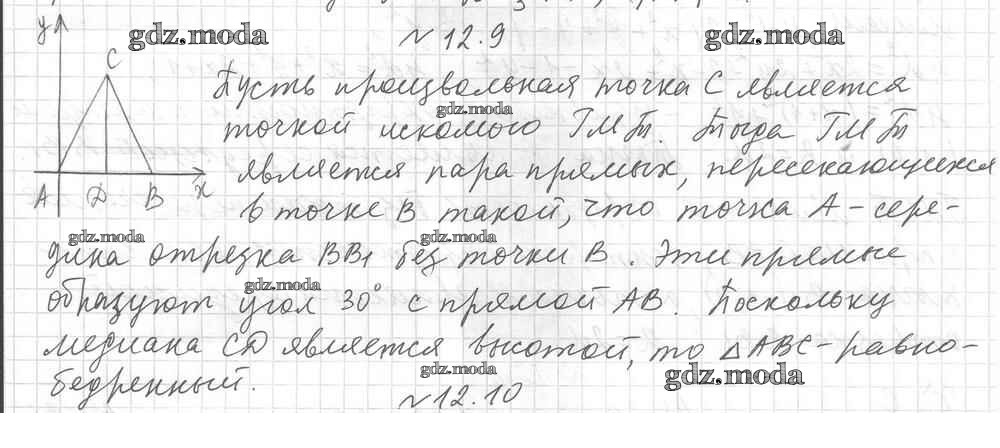 y
C
A D B x
№ 12.9
Пусть произвольная точка С является
точкой искомого ГМТ. Тогда ГМТ
является пара прямых, пересекающихся
в точке В такой, что точка А – сере-
дина отрезка ВВ₁ без точки В. Эти прямые
образуют угол 30° с прямой АВ. Поскольку
медиана CD является высотой, то △АВС – равно-
бедренный.
№ 12.10
gdz.moda
gdz.moda
gdz.moda
gdz.moda
gdz.moda
gdz.moda
gdz.moda
gdz.moda